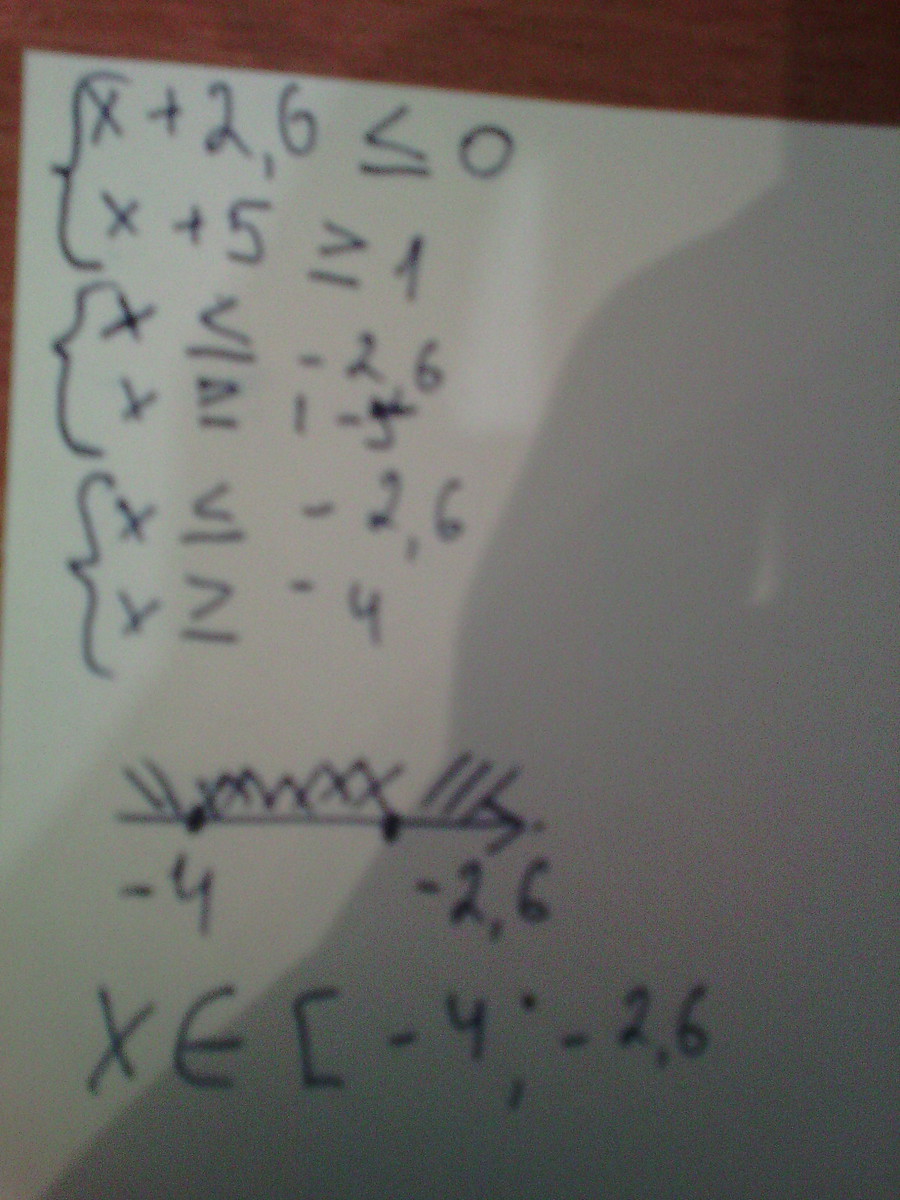 x + 2,6 ≤ 0
x + 5 ≥ 1
x ≤ - 2,6
x ≥ 1 - 5
x ≤ - 2,6
x ≥ - 4
-4 -2,6
x ∈ [ - 4 ; - 2,6